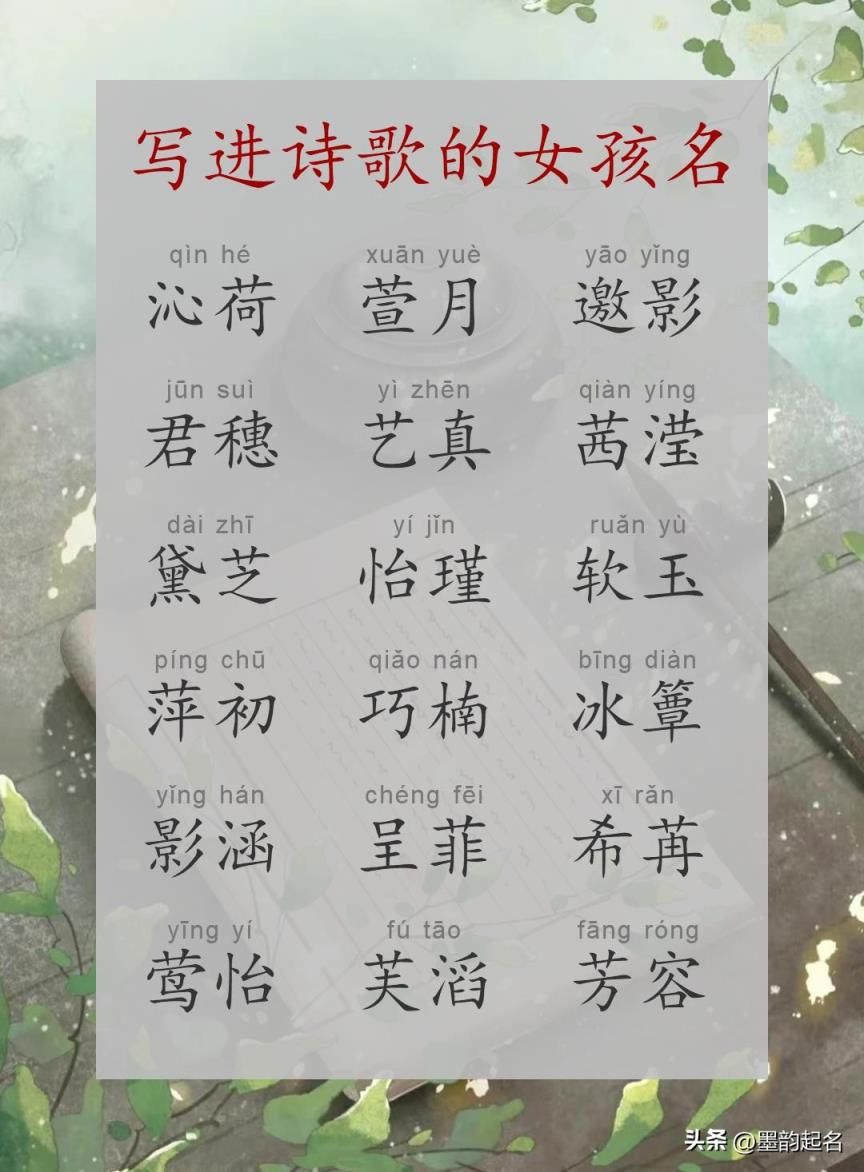 写进诗歌的女孩名
qìn hé xuān yuè yāo yǐng
沁荷 萱月 邀影
jūn suì yì zhēn qiàn yíng
君穗 艺真 茜滢
dài zhī yí jǐn ruǎn yù
黛芝 怡瑾 软玉
píng chū qiǎo nán bīng diàn
萍初 巧楠 冰簟
yǐng hán chéng fēi xī rǎn
影涵 呈菲 希苒
yīng yí fú tāo fāng róng
莺怡 芙滔 芳容
头条 @墨韵起名